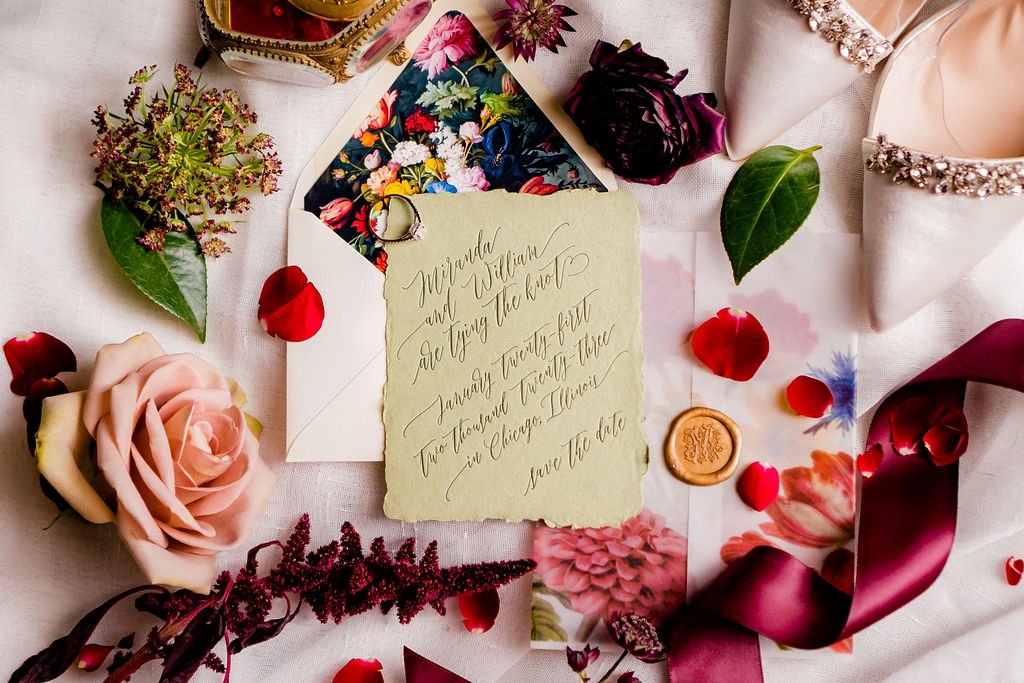 Miranda
and William
are tying the knot
January twenty-first
two thousand twenty-three
in Chicago, Illinois
save the date